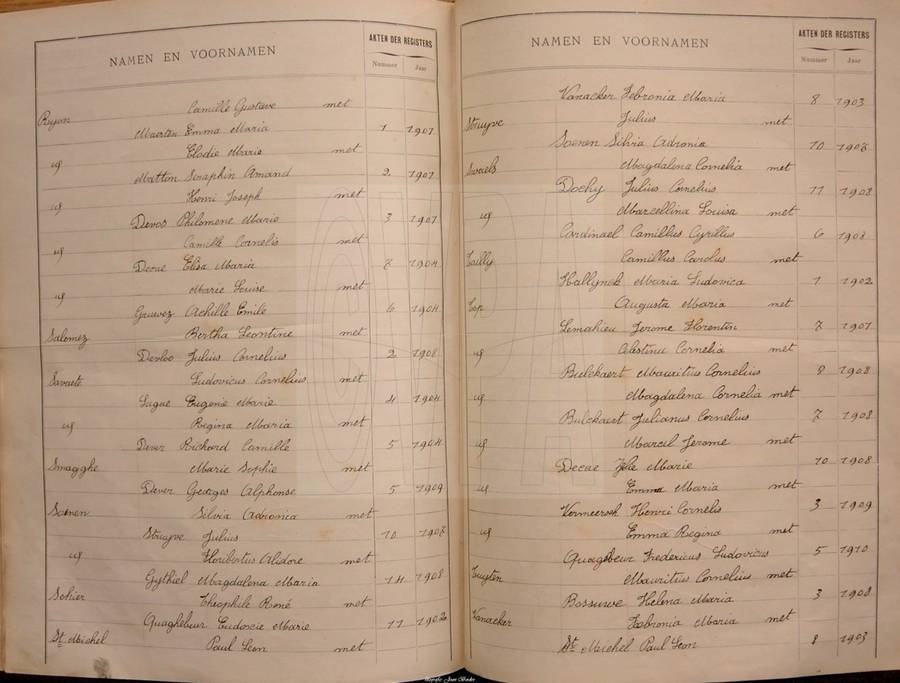 NAMEN EN VOORNAMEN
AKTEN DER REGISTERS
Nummer Jaar
Ryon Camille Gustave met
Maerten Emma Maria 1 1901
id Elodie Marie met
Matton Seraphin Amand 2 1901
id Henri Joseph met
Devos Philomene Marie 3 1901
id Camille Cornelis met
Decae Elisa Maria 7 1904
id Marie Louise met
Gruwez Achille Emile 6 1904
Salomez Bertha Leontine met
Devloo Julius Cornelius 2 1908
Savaete Ludovicus Cornelius met
Eugenie Marie 4 1904
id Regina Maria met
Dever Richard Camille 5 1904
Smagghe Marie Sophie met
Dever Georges Alphonse 5 1909
Soenen Silvia Adronia met
Struyve Julius 10 1907
id Floribertus Alidore met
Gythiel Magdalena Maria 14 1908
Sohier Theophile René met
Quaghebeur Eudoxie Marie 11 1902
St. Michel Paul Leon met
NAMEN EN VOORNAMEN
AKTEN DER REGISTERS
Nummer Jaar
Vanacker Febronia Maria 8 1903
Struyve Julius met
Soenen Silvia Adronia 10 1907
Swaels Magdalena Cornelia met
Dochy Julius Cornelius 11 1908
id Marcellina Louisa met
Cardinael Camillus Cyrillus 6 1907
Tailly Camillus Carolus met
Hallynck Maria Ludovica 1 1902
Top Augusta Maria met
Lemahieu Jerome Florentin 7 1901
id Celestina Cornelia met
Bulckaert Mauritius Cornelius 8 1908
id Magdalena Cornelia met
Bulckaert Julianus Cornelius 7 1908
id Marcil Jerome met
Decae Marie 10 1908
id Emma Maria met
Vermeersch Henri Cornelis 3 1909
id Emma Regina met
Quaghebeur Fredericus Ludovicus 5 1910
Tugten Mauritius Cornelius met
Bossuwe Helena Maria 3 1908
Vanacker Febronia Maria met
St. Michel Paul Leon 8 1903